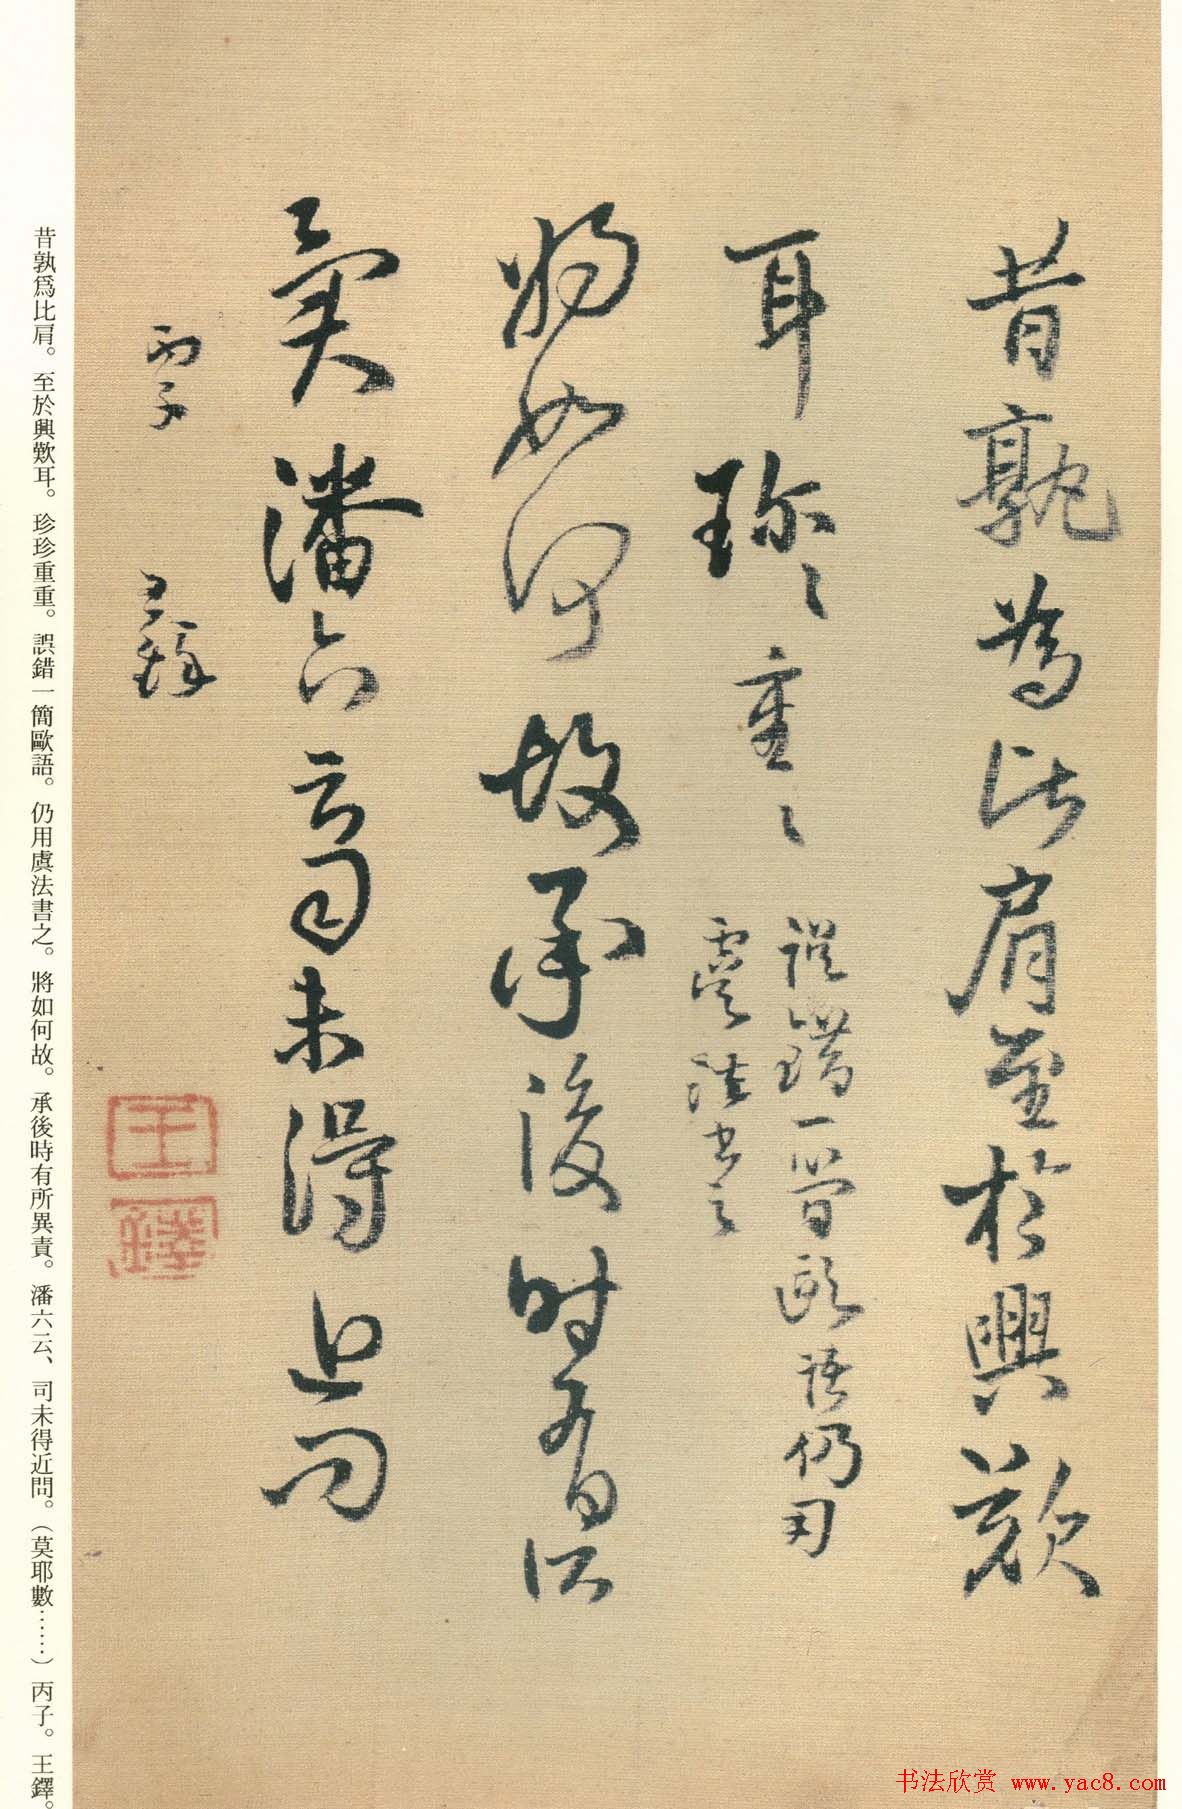 昔孰為比肩至於興歎
耳珍〻重〻
誤錯一簡歐語仍用
虞法書之
將如何故承後時有所
異潘六云司未得近問
丙子
王鐸
王鐸
昔孰爲比肩。至於興歎耳。珍珍重重。誤錯一簡歐語。仍用虞法書之。將如何故。承後時有所異責。潘六云、司未得近問。（莫耶數……）丙子。王鐸。
书法欣赏 www.yac8.com